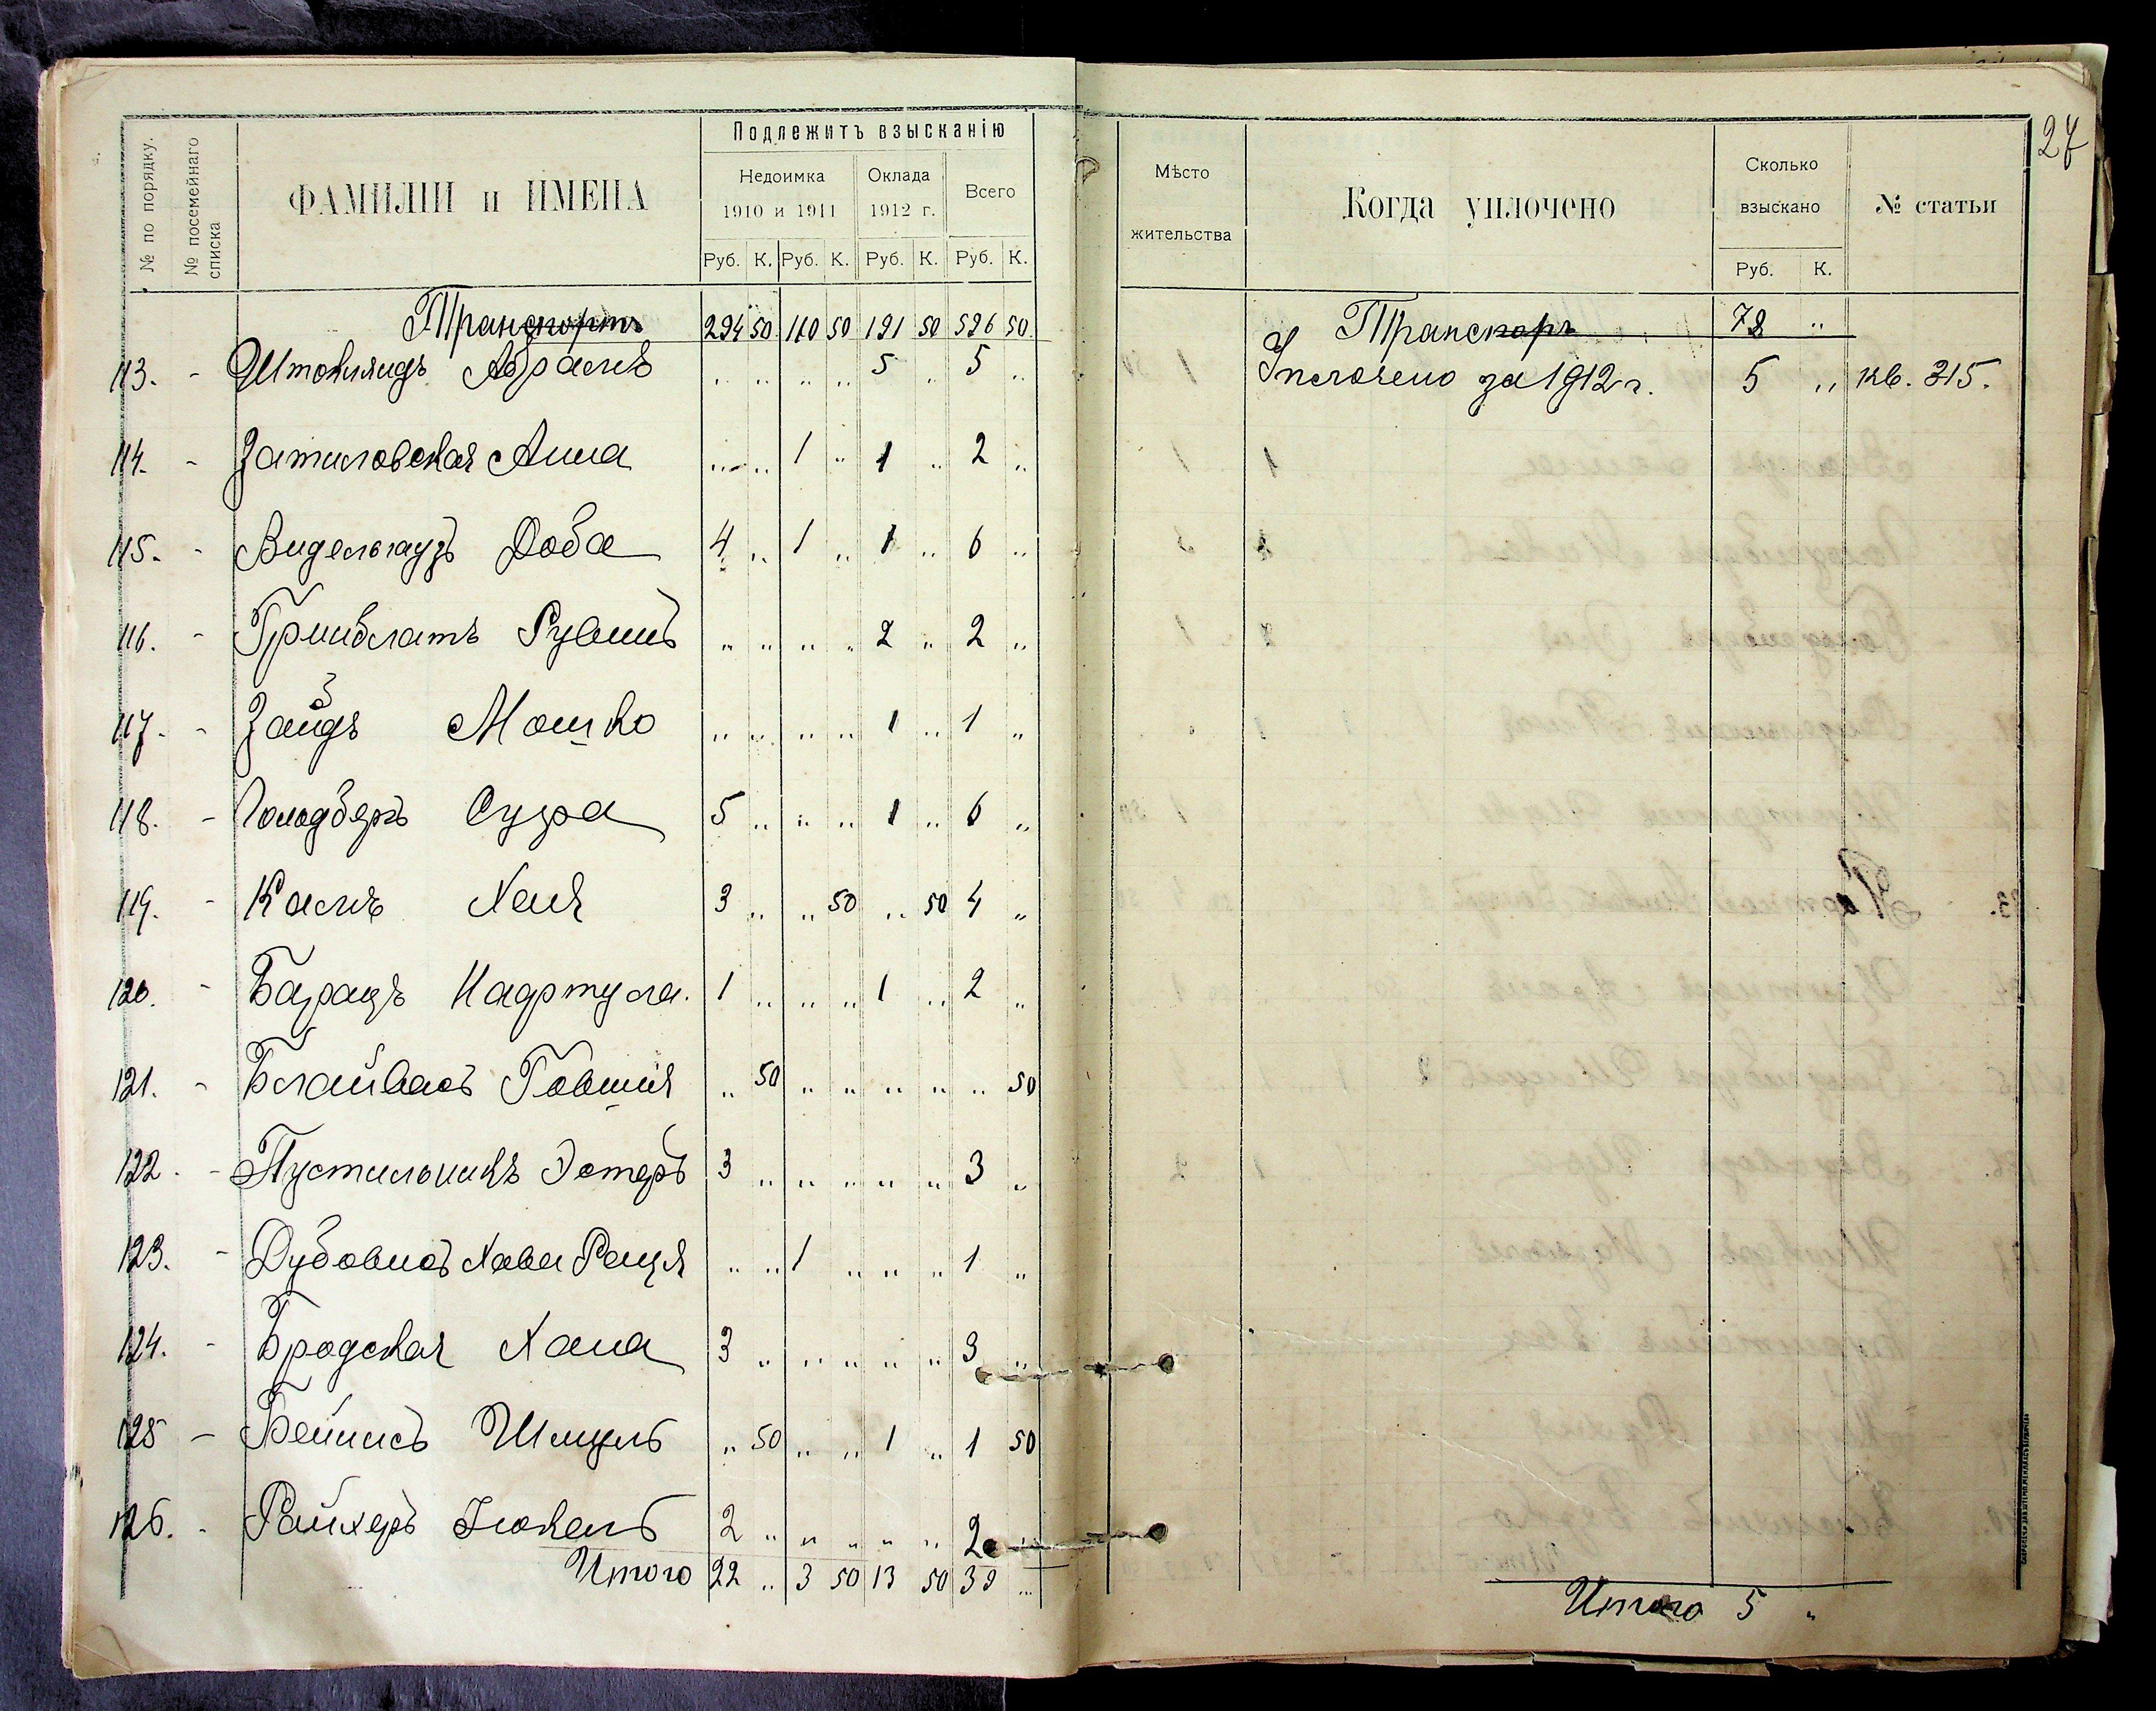 27
№ по порядку.
№ посемейнаго списка
ФАМИЛІИ и ИМЕНА
Подлежитъ взысканію
Недоимка Оклада Всего
1910 и 1911 1912 г.
Руб. К. Руб. К. Руб. К. Руб. К.
Мѣсто жительства
Когда уплочено
Сколько взыскано
Руб. К.
№ статьи
Транспортъ 294 50 110 50 191 50 596 50
Транспорт 78 "
113. - Абрамъ " " " " 5 " 5 "
Уплочено за 1912 г. 5 " кв. 315.
114. - Затиловская Анна " " 1 " 1 " 2 "
115. - Видельгаузъ Доба 4 " 1 " 1 " 6 "
116. - Гринблатъ Рувинъ " " " " 2 " 2 "
117. - Зайдъ Мошко " " " " 1 " 1 "
118. - Гольдбергъ Сура 5 " " " 1 " 6 "
119. - Камъ Хая 3 " " 50 " 50 4 "
120. - Барацъ Нафтула. 1 " " " 1 " 2 "
121. - Блайвасъ Говшия " 50 " " " " " 50
122. - Пустильникъ Эстеръ 3 " " " " " 3 "
123. - Дубовисъ Хава Рейзя " " 1 " " " 1 "
124. - Бродская Хана 3 " " " " " 3 "
125 - Бейнисъ Шмуль " 50 " " 1 " 1 50
126. - Райхеръ 2 " " " " " 2 "
Итого 22 " 3 50 13 50 39 "
Итого 5 "